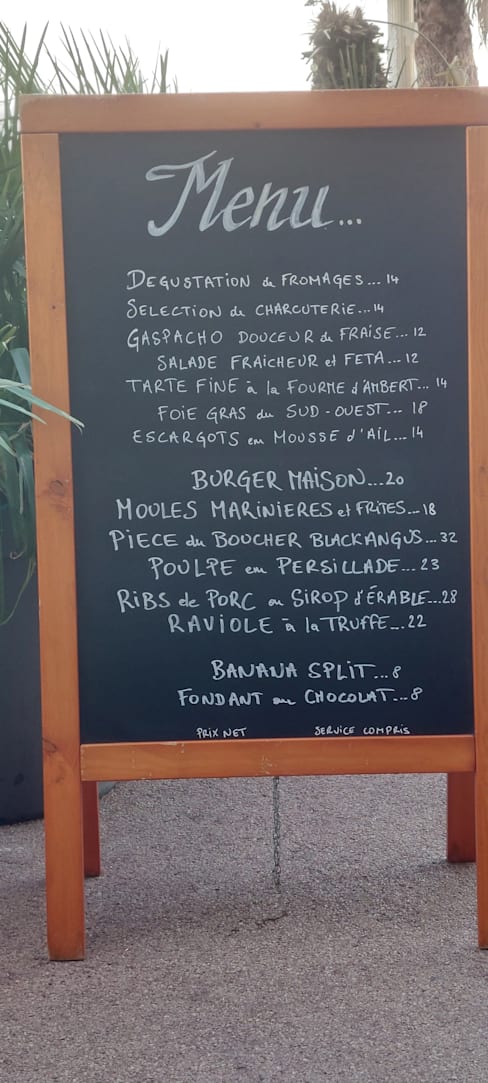 Menu...
DEGUSTATION de FROMAGES... 14
SELECTION de CHARCUTERIE... 14
GASPACHO DOUCEUR de FRAISE... 12
SALADE FRAICHEUR et FETA... 12
TARTE FINE à la FOURME d'AMBERT... 14
FOIE GRAS du SUD-OUEST... 18
ESCARGOTS en MOUSSE d'AIL... 14
BURGER MAISON... 20
MOULES MARINIERES et FRITES... 18
PIECE du BOUCHER BLACKANGUS... 32
POULPE en PERSILLADE... 23
RIBS de PORC au SIROP d'ÉRABLE... 28
RAVIOLE à la TRUFFE... 22
BANANA SPLIT... 8
FONDANT au CHOCOLAT... 8
PRIX NET SERVICE COMPRIS